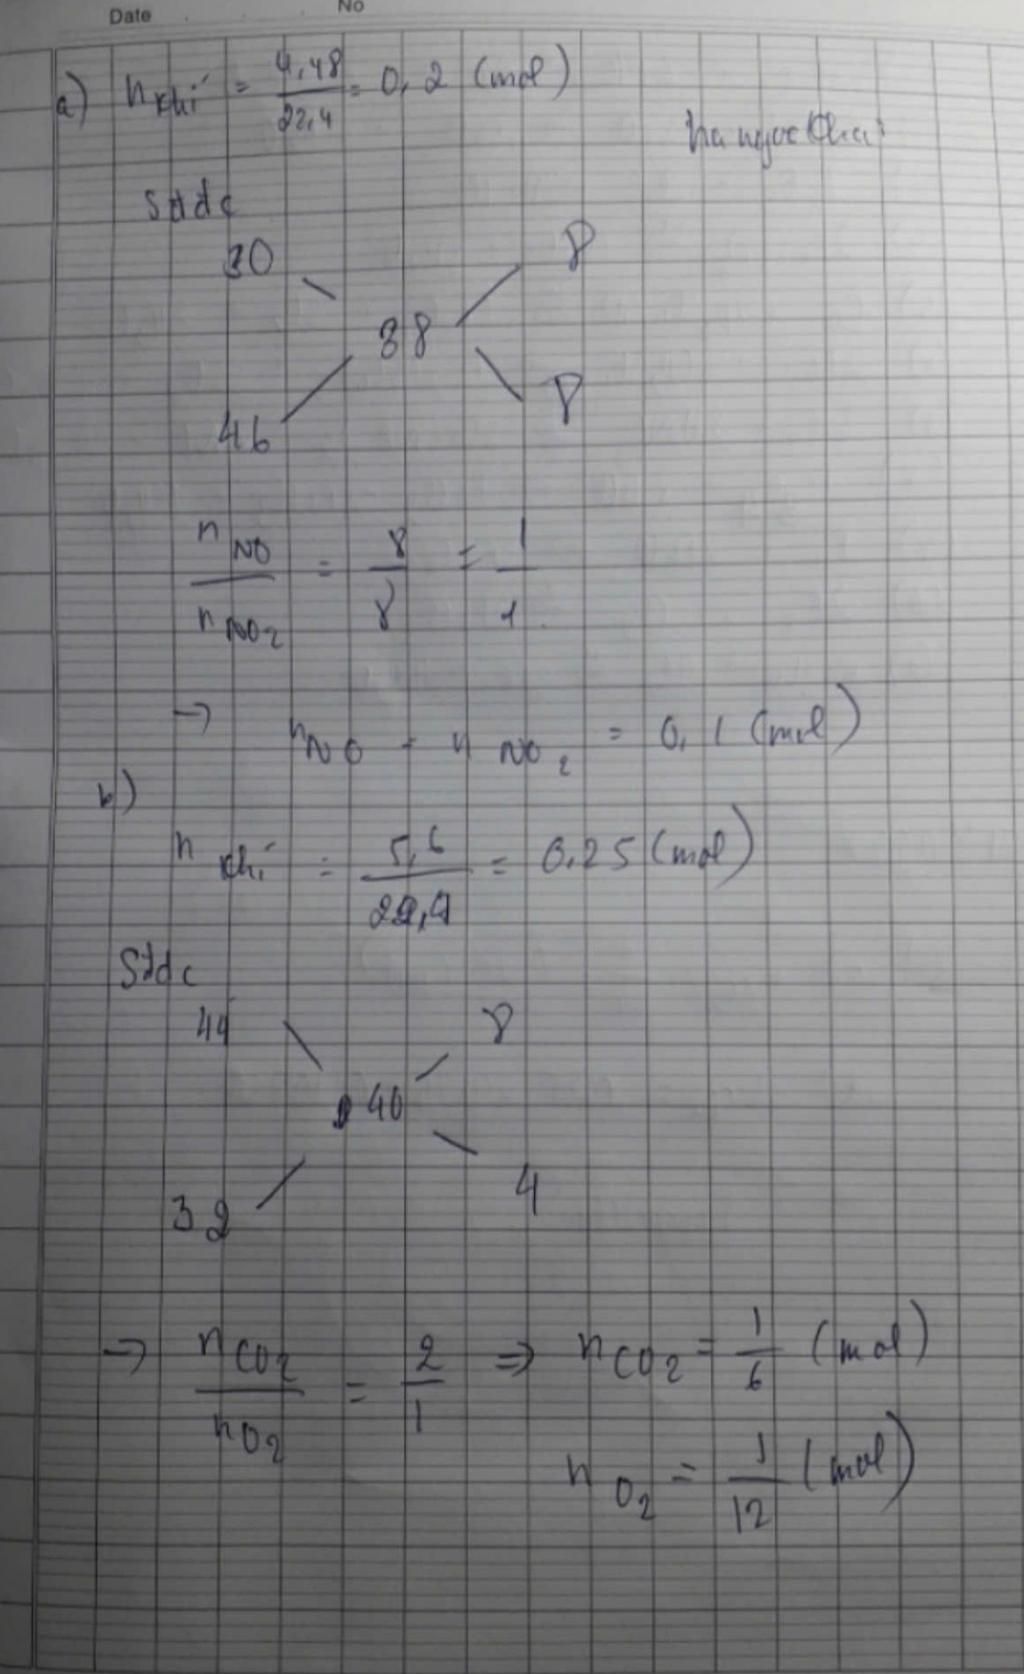 Date No
a) n khí = 4,48 / 22,4 = 0,2 (mol)
Sđđc
30 8
38
46 8
n NO / n NO2 = 8 / 8 = 1 / 1
→ n NO = n NO2 = 0,1 (mol)
b)
n khí = 5,6 / 22,4 = 0,25 (mol)
Sđđc
44 8
40
32 4
→ n CO2 / n O2 = 2 / 1 ⇒ n CO2 = 1 / 6 (mol)
n O2 = 1 / 12 (mol)